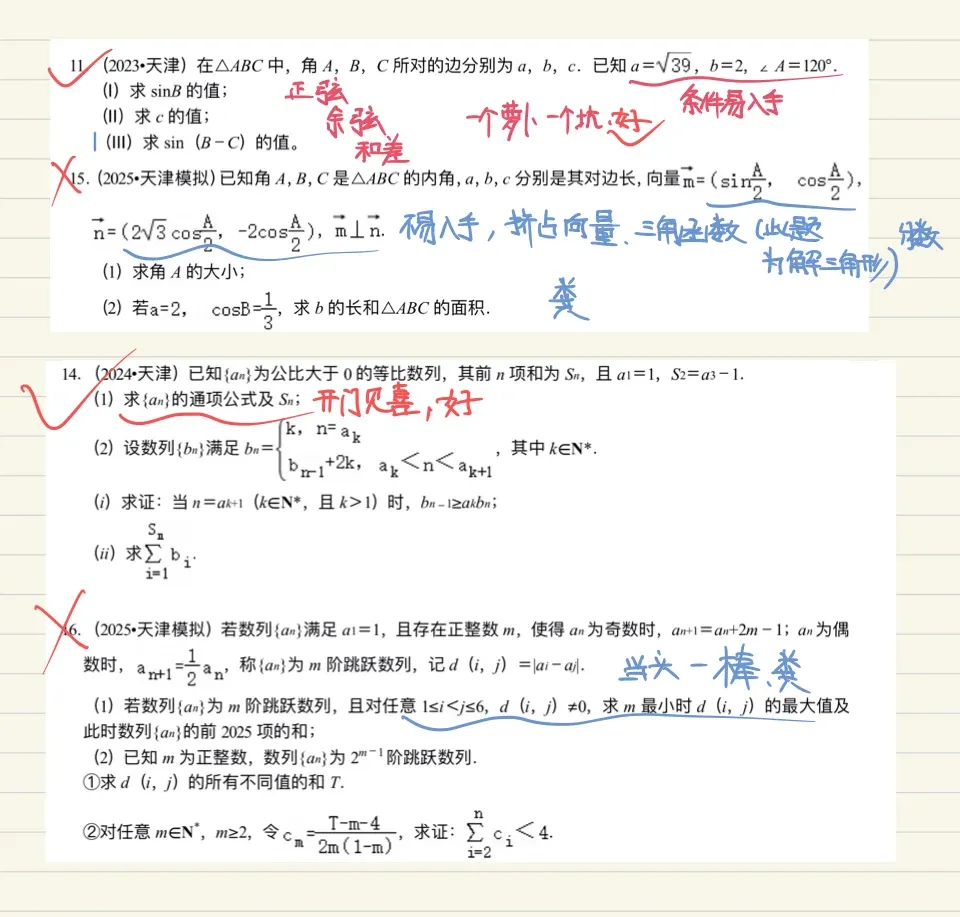 11.(2023•天津)在△ABC中,角A,B,C所对的边分别为a,b,c.已知a=√39,b=2,∠A=120°.
(Ⅰ)求sinB的值; 正弦 条件易入手
(Ⅱ)求c的值; 余弦 一个萝卜一个坑.好
(Ⅲ)求sin(B-C)的值。 和差
15.(2025•天津模拟)已知角A,B,C是△ABC的内角,a,b,c分别是其对边长,向量m⃗=(sin A/2, cos A/2),
n⃗=(2√3 cos A/2, -2cos A/2),m⃗⊥n⃗. 易入手,挤占向量、三角函数(此题 分数
为解三角形)
(1)求角A的大小;
(2)若a=2, cosB=1/3,求b的长和△ABC的面积. 粪
14.(2024•天津)已知{an}为公比大于0的等比数列,其前n项和为Sn,且a1=1,S2=a3-1.
(1)求{an}的通项公式及Sn; 开门见喜,好
(2)设数列{bn}满足bn={k, n=ak
bn-1+2k, ak<n<ak+1 ,其中k∈N*.
(i)求证:当n=ak+1(k∈N*,且k>1)时,bn-1≥akbn;
(ii)求∑(i=1→Sn) bi.
16.(2025•天津模拟)若数列{an}满足a1=1,且存在正整数m,使得an为奇数时,an+1=an+2m-1;an为偶
数时,an+1=1/2 an,称{an}为m阶跳跃数列,记d(i,j)=|ai-aj|. 当头一棒、粪
(1)若数列{an}为m阶跳跃数列,且对任意1≤i<j≤6,d(i,j)≠0,求m最小时d(i,j)的最大值及
此时数列{an}的前2025项的和;
(2)已知m为正整数,数列{an}为2^(m-1)阶跳跃数列.
①求d(i,j)的所有不同值的和T.
②对任意m∈N*,m≥2,令cm=(T-m-4)/(2m(1-m)),求证:∑(i=2→n) ci<4.